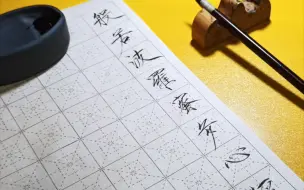 般若波羅蜜多心